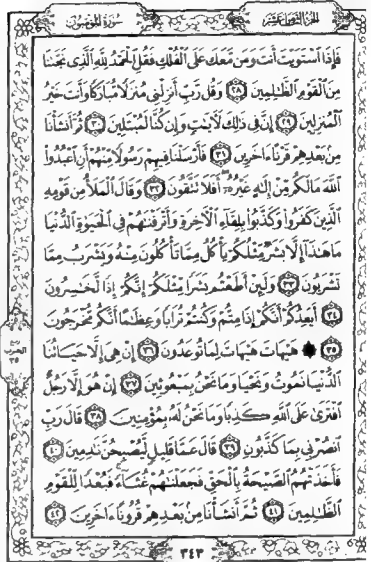 الجزء الثامن عشر
سورة المؤمنون
فَإِذَا ٱسْتَوَيْتَ أَنتَ وَمَن مَّعَكَ عَلَى ٱلْفُلْكِ فَقُلِ ٱلْحَمْدُ لِلَّهِ ٱلَّذِى نَجَّىٰنَا
مِنَ ٱلْقَوْمِ ٱلظَّٰلِمِينَ ٢٨ وَقُل رَّبِّ أَنزِلْنِى مُنزَلًا مُّبَارَكًا وَأَنتَ خَيْرُ
ٱلْمُنزِلِينَ ٢٩ إِنَّ فِى ذَٰلِكَ لَءَايَٰتٍ وَإِن كُنَّا لَمُبْتَلِينَ ٣٠ ثُمَّ أَنشَأْنَا
مِنۢ بَعْدِهِمْ قَرْنًا ءَاخَرِينَ ٣١ فَأَرْسَلْنَا فِيهِمْ رَسُولًا مِّنْهُمْ أَنِ ٱعْبُدُوا۟
ٱللَّهَ مَا لَكُم مِّنْ إِلَٰهٍ غَيْرُهُۥٓ أَفَلَا تَتَّقُونَ ٣٢ وَقَالَ ٱلْمَلَأُ مِن قَوْمِهِ
ٱلَّذِينَ كَفَرُوا۟ وَكَذَّبُوا۟ بِلِقَآءِ ٱلْءَاخِرَةِ وَأَتْرَفْنَٰهُمْ فِى ٱلْحَيَوٰةِ ٱلدُّنْيَا
مَا هَٰذَآ إِلَّا بَشَرٌ مِّثْلُكُمْ يَأْكُلُ مِمَّا تَأْكُلُونَ مِنْهُ وَيَشْرَبُ مِمَّا
تَشْرَبُونَ ٣٣ وَلَئِنْ أَطَعْتُم بَشَرًا مِّثْلَكُمْ إِنَّكُمْ إِذًا لَّخَٰسِرُونَ
٣٤ أَيَعِدُكُمْ أَنَّكُمْ إِذَا مِتُّمْ وَكُنتُمْ تُرَابًا وَعِظَٰمًا أَنَّكُم مُّخْرَجُونَ
٣٥ ۞ هَيْهَاتَ هَيْهَاتَ لِمَا تُوعَدُونَ ٣٦ إِنْ هِىَ إِلَّا حَيَاتُنَا
ٱلدُّنْيَا نَمُوتُ وَنَحْيَا وَمَا نَحْنُ بِمَبْعُوثِينَ ٣٧ إِنْ هُوَ إِلَّا رَجُلٌ
ٱفْتَرَىٰ عَلَى ٱللَّهِ كَذِبًا وَمَا نَحْنُ لَهُۥ بِمُؤْمِنِينَ ٣٨ قَالَ رَبِّ
ٱنصُرْنِى بِمَا كَذَّبُونِ ٣٩ قَالَ عَمَّا قَلِيلٍ لَّيُصْبِحُنَّ نَٰدِمِينَ ٤٠
فَأَخَذَتْهُمُ ٱلصَّيْحَةُ بِٱلْحَقِّ فَجَعَلْنَٰهُمْ غُثَآءً فَبُعْدًا لِّلْقَوْمِ
ٱلظَّٰلِمِينَ ٤١ ثُمَّ أَنشَأْنَا مِنۢ بَعْدِهِمْ قُرُونًا ءَاخَرِينَ ٤٢
٣٤٣